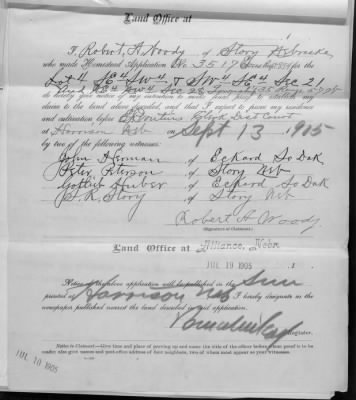 Land Office at
I, Robert A. Woody of Story Nebraska
who made Homestead Application No. 3517
Lot 4 SE 4 SW 4 & SW 4 SE 4 Sec 21
do hereby give notice of my intention to make
claim to the land above described, and that I expect to prove my residence
and cultivation before Clerk Dist Court
at Harrison Neb on Sept 13 1905
by two of the following witnesses:
John Herman of Eckard So Dak
Peter Peterson of Story Neb
Gottlieb Huber of Eckard So Dak
S. R. Story of Story Neb
Robert A. Woody
(Signature of Claimant.)
Land Office at Alliance, Nebr
JUL 19 1905
Notice of the above application will be published in the Sun
printed at Harrison Neb I hereby designate as the
newspaper published nearest the land described in said application.
Register.
Notice to Claimant:—Give time and place of proving up and name the title of the officer before whom proof is to be
made; also give names and post-office address of four neighbors, two of whom must appear as your witnesses.
JUL 19 1905